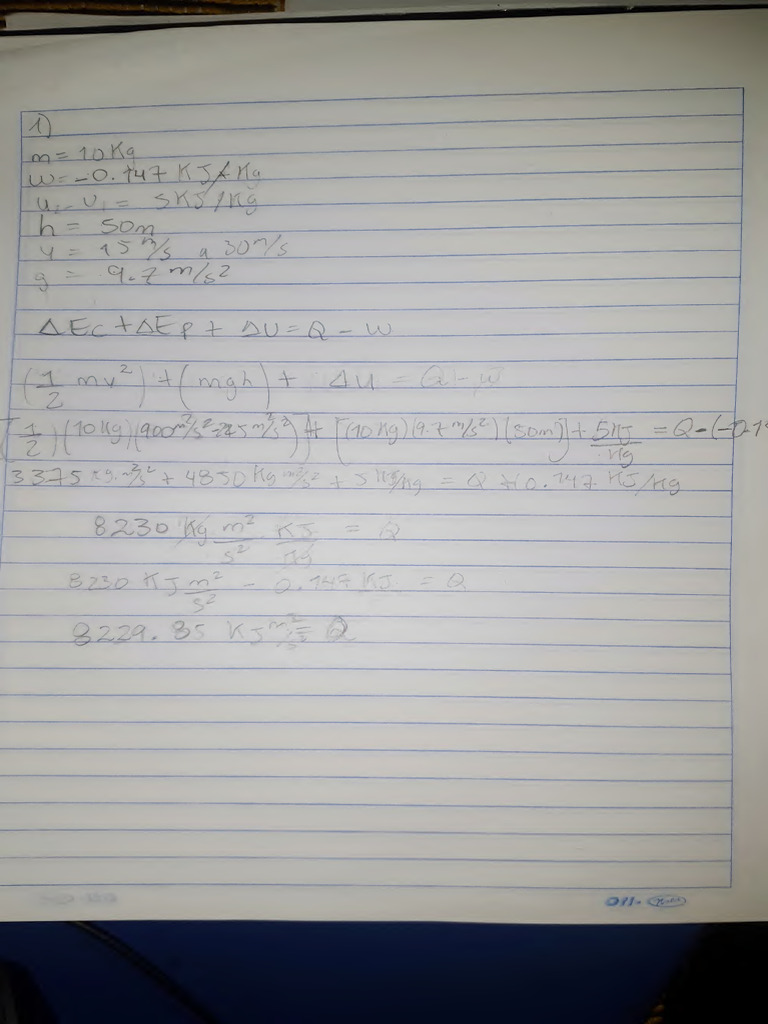 1)
m = 10 Kg
w = -0.147 KJ/Kg
u₂ - u₁ = 5KJ/Kg
h = 50m
v = 15 m/s a 30 m/s
g = 9.7 m/s²
ΔEc + ΔEp + ΔU = Q - W
(1/2 mv²) + (mgh) + ΔU = Q - W
[1/2)(10Kg)(900m²/s² - 225 m²/s²)] + [(10Kg)(9.7 m/s²)(50m)] + 5KJ/Kg = Q - (-0.1
3375 Kg m²/s² + 4850 Kg m²/s² + 5 KJ/Kg = Q + 0.147 KJ/Kg
8230 Kg m²/s² KJ/Kg = Q
8230 KJ m²/s² - 0.147 KJ = Q
8229.85 KJ m²/s² = Q
011-